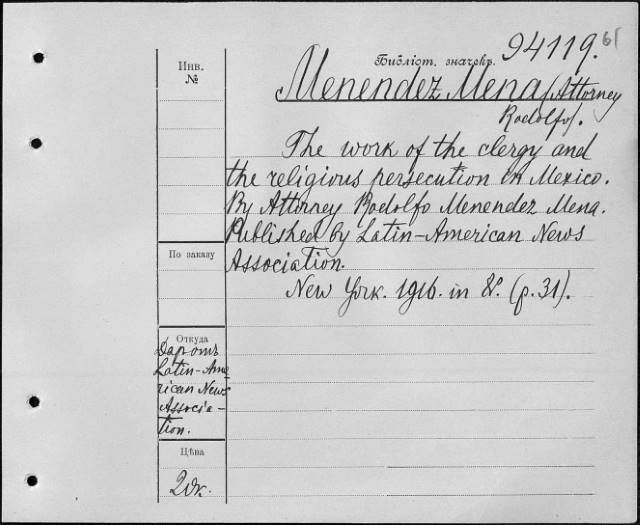 Библіот. значекъ. 94119. 61
Инв.
№
Menendez Mena (Attorney
Rodolfo).
The work of the clergy and
the religious persecution in Mexico.
By Attorney Rodolfo Menendez Mena.
Published by Latin-American News
Association.
New York. 1916. in 8°. (p. 31).
По заказу
Откуда
Даръ отъ
Latin-Ame
rican News
Associa-
tion.
Цѣна